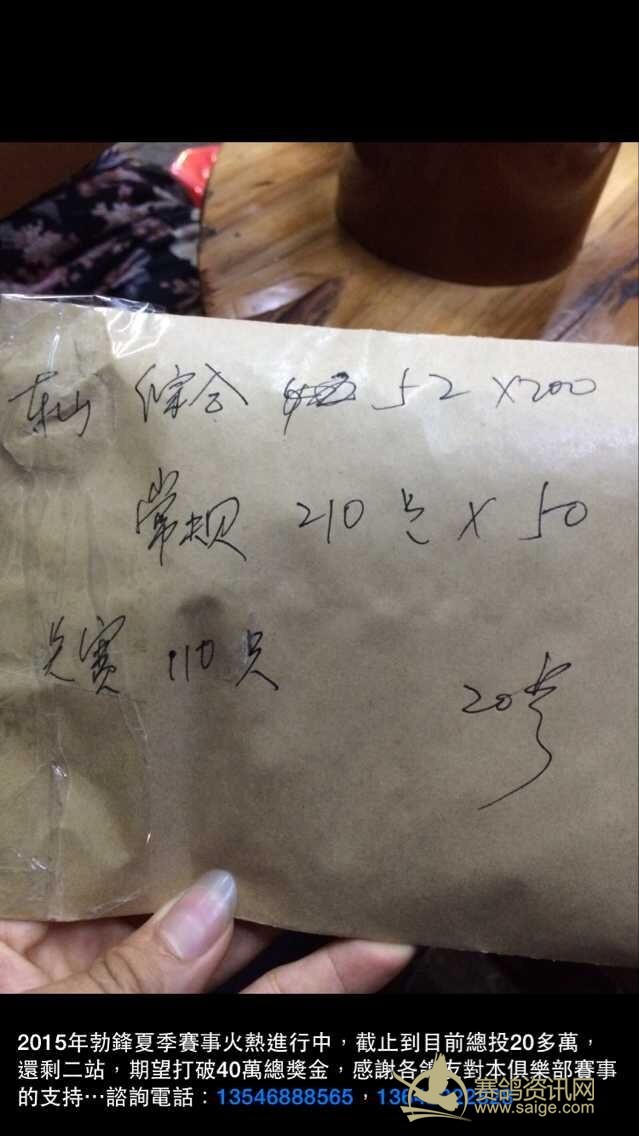 东山 综合 52 X200
常规 210只 X 50
只赛 110只
20号
2015年勃鋒夏季賽事火熱進行中，截止到目前總投20多萬，
還剩二站，期望打破40萬總獎金，感謝各鴿友對本俱樂部賽事
的支持…諮詢電話：13546888565，
赛鸽资讯网
www.saige.com